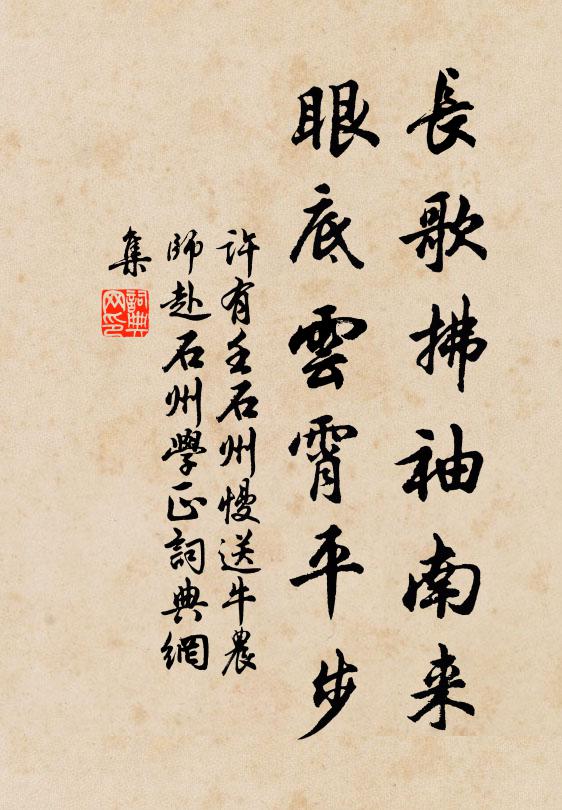 長歌拂袖南来
眼底雲霄平步
許有壬石州慢送牛農
師赴石州學正詞典網
集
詞典网印